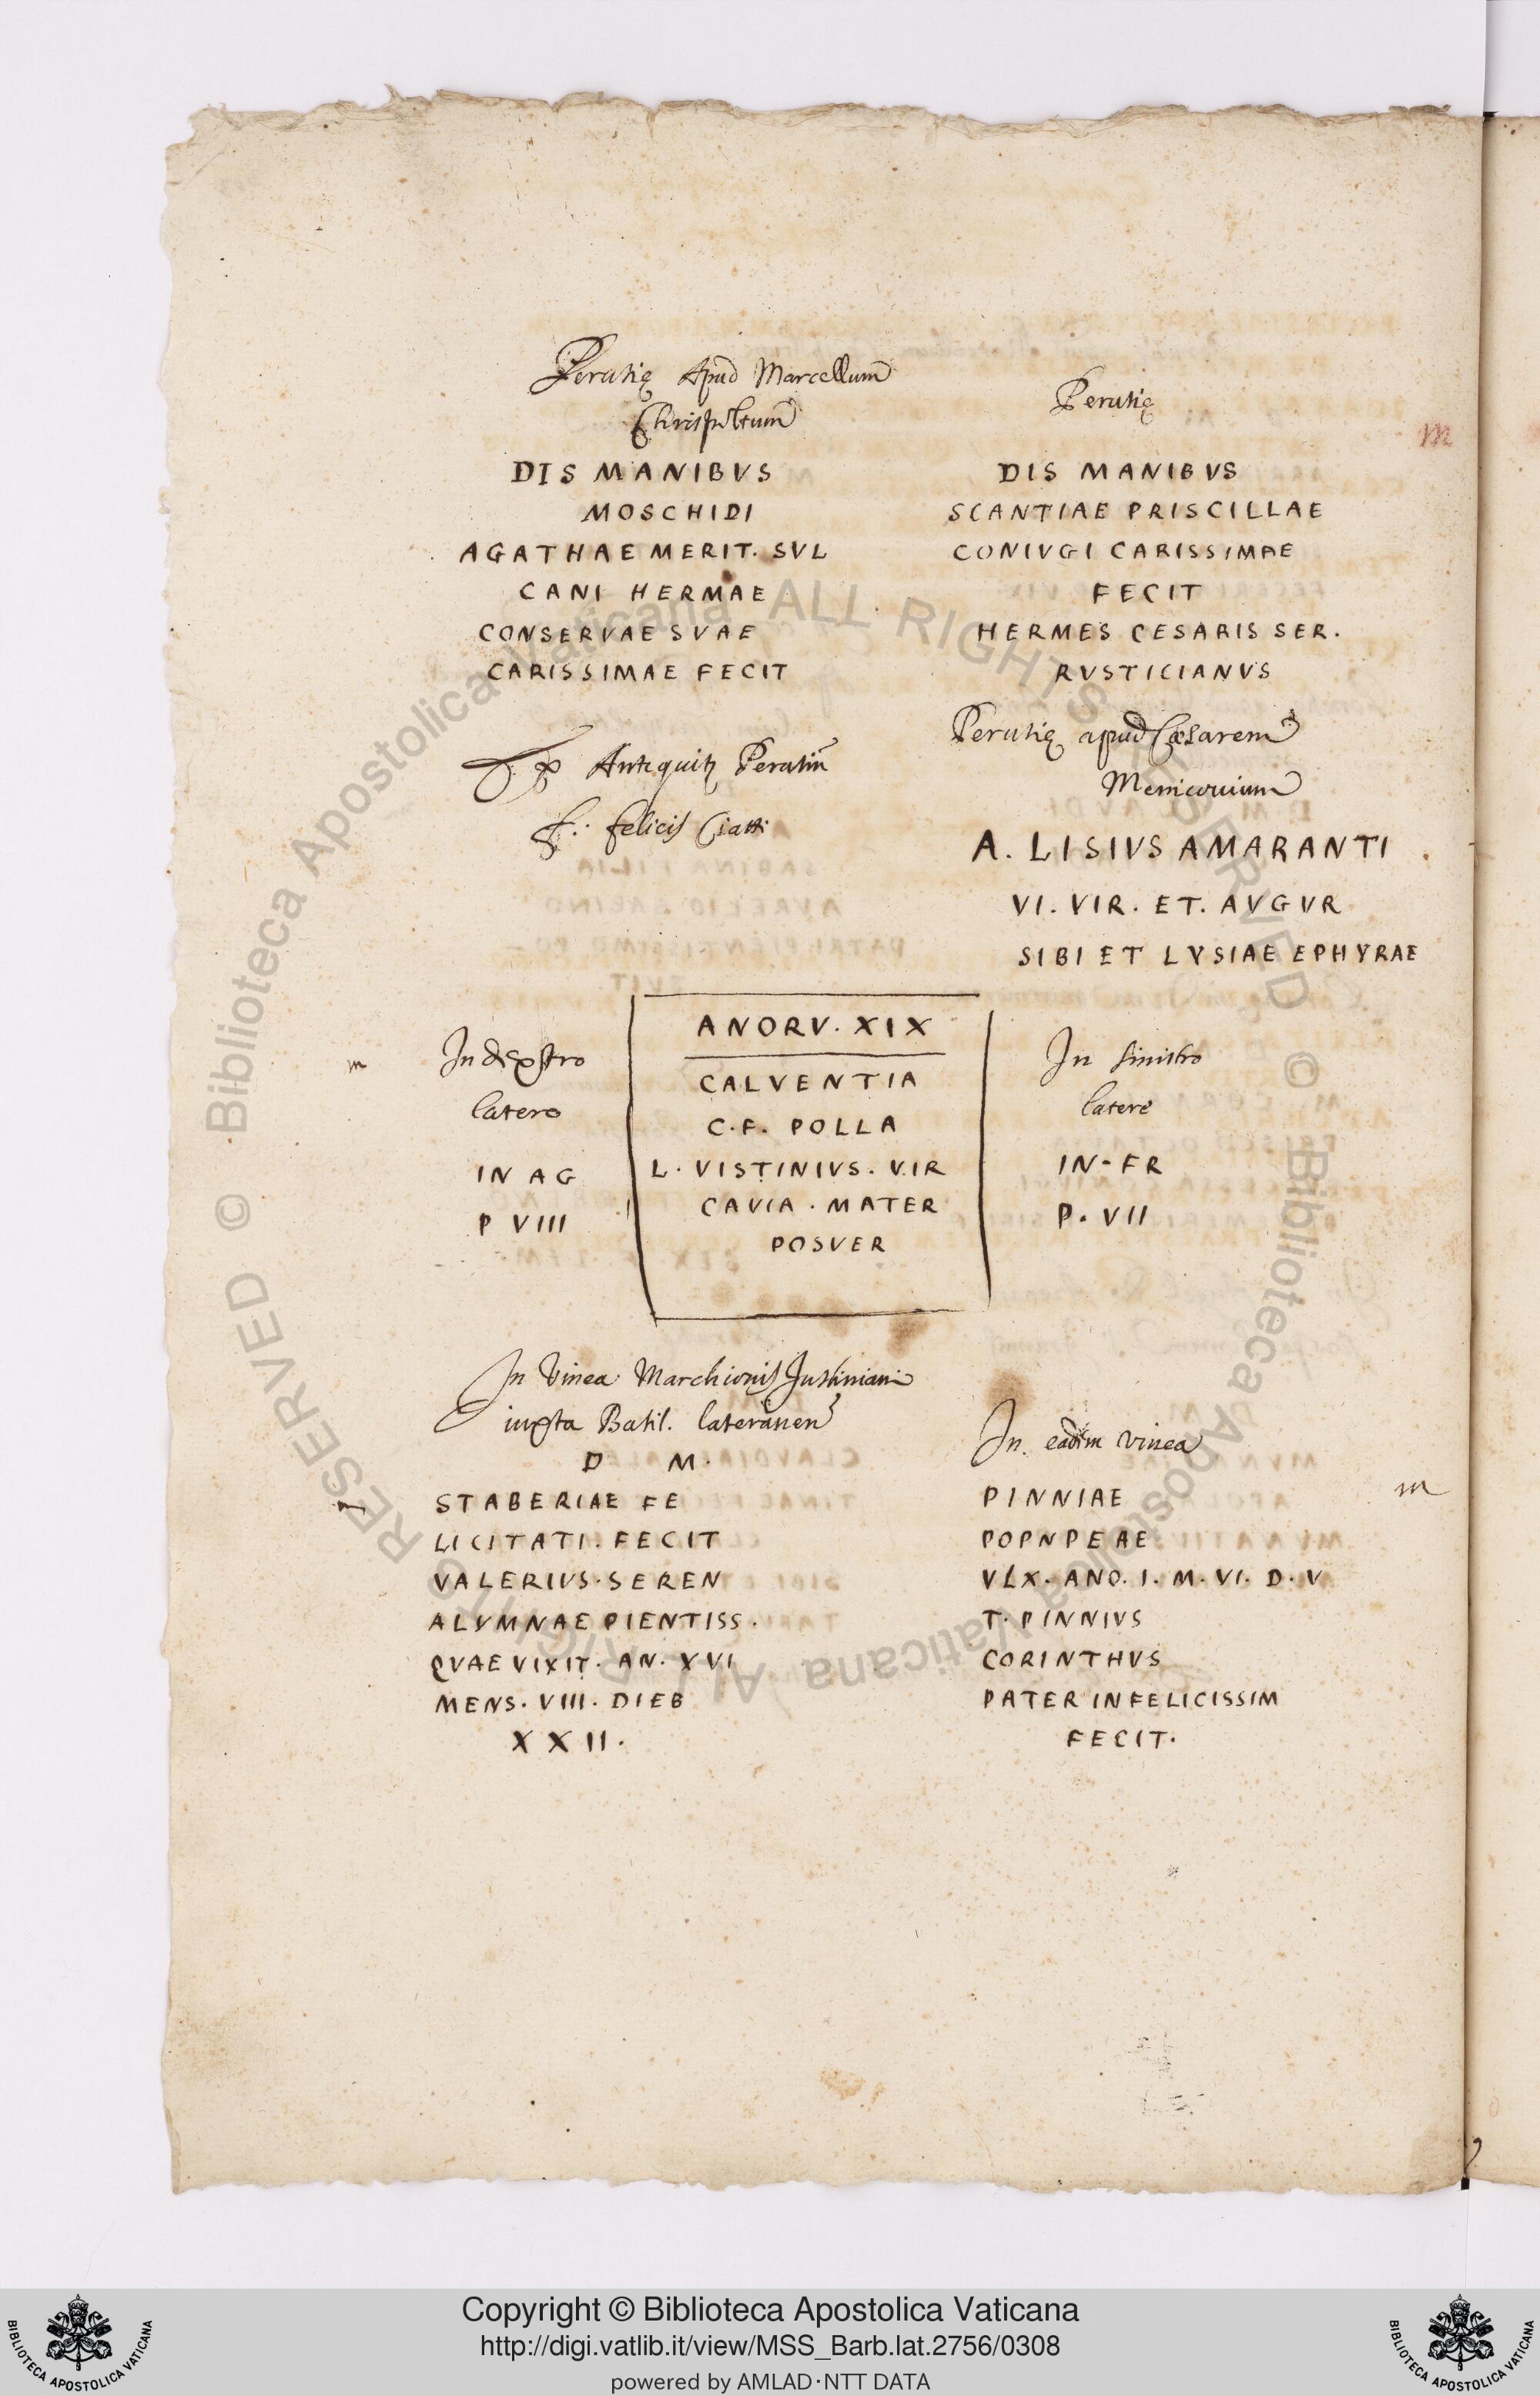 Perusię Apud Marcellum
Chrispoltum
DIS MANIBVS
MOSCHIDI
AGATHAE MERIT. SVL
CANI HERMAE
CONSERVAE SVAE
CARISSIMAE FECIT
Ex Antiquit Perusin
F. felicis Ciatti
Perusię
m
DIS MANIBVS
SCANTIAE PRISCILLAE
CONIVGI CARISSIMAE
FECIT
HERMES CESARIS SER.
RVSTICIANVS
Perusię apud Cæsarem
Meniconium
A. LISIVS AMARANTI
VI. VIR. ET. AVGVR
SIBI ET LVSIAE EPHYRAE
m
In dextro
latero
IN AG
P VIII
ANORV. XIX
CALVENTIA
C. F. POLLA
L. VISTINIVS. VIR
CAVIA. MATER
POSVER
In sinistro
latere
IN-FR
P. VII
In Vinea Marchionis Justiniani
iuxta Basil. lateranen
D M.
STABERIAE FE
LICITATI. FECIT
VALERIVS. SEREN
ALVMNAE PIENTISS.
QVAE VIXIT. AN. XVI
MENS. VIII. DIEB
XXII.
In eadem vinea
m
PINNIAE
POPNPEAE
VLX. ANO. I. M. VI. D. V
T. PINNIVS
CORINTHVS
PATER INFELICISSIM
FECIT.
© Biblioteca Apostolica Vaticana ALL RIGHTS RESERVED
© Biblioteca Apostolica Vaticana ALL RIGHTS RESERVED
Copyright © Biblioteca Apostolica Vaticana
http://digi.vatlib.it/view/MSS_Barb.lat.2756/0308
powered by AMLAD·NTT DATA
BIBLIOTECA APOSTOLICA VATICANA
BIBLIOTECA APOSTOLICA VATICANA